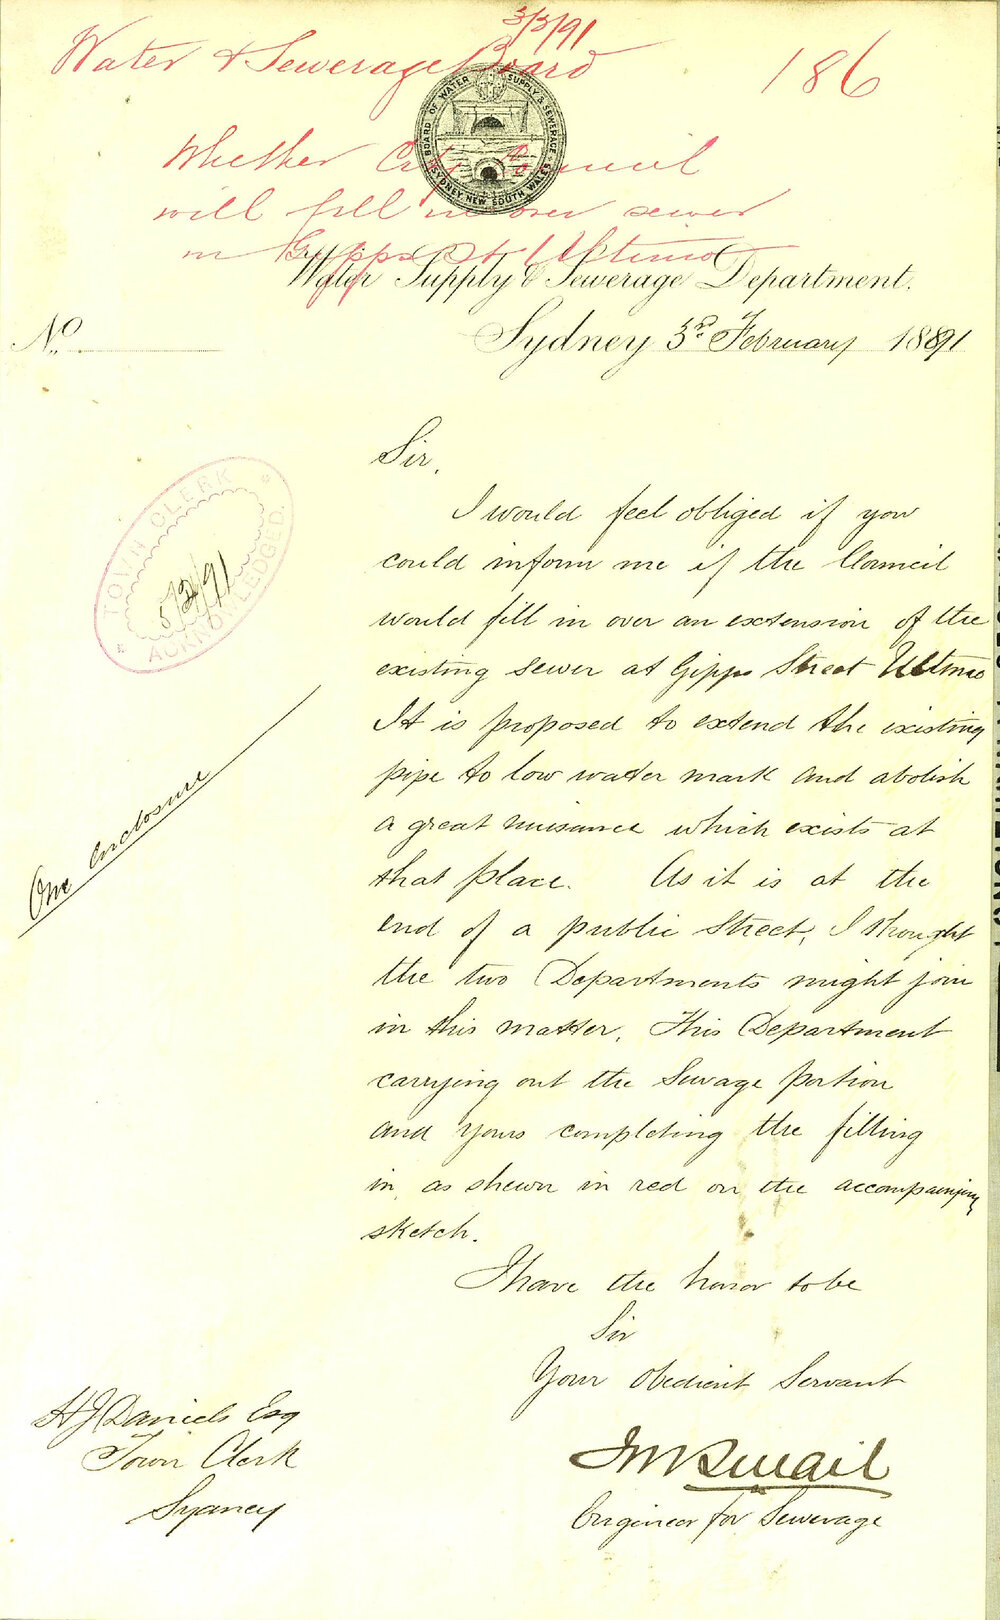 3/3/91
Water & Sewerage Board
186
BOARD OF WATER SUPPLY & SEWERAGE
SYDNEY NEW SOUTH WALES
Whether City Council
will fill in over sewer
in Gipps St Ultimo
Water Supply & Sewerage Department.
No.
Sydney 3rd February 1891
Sir,
TOWN CLERK
5/2/91
ACKNOWLEDGED.
I would feel obliged if you
could inform me if the Council
would fill in over an extension of the
existing sewer at Gipps Street Ultimo
It is proposed to extend the existing
pipe to low water mark and abolish
a great nuisance which exists at
that place. As it is at the
end of a public street, I thought
the two Departments might join
in this matter. This Department
carrying out the Sewage portion
and yours completing the filling
in, as shewn in red on the accompanying
sketch.
One enclosure
I have the honor to be
Sir
Your Obedient Servant
Engineer for Sewerage
H J Daniels Esq
Town Clerk
Sydney